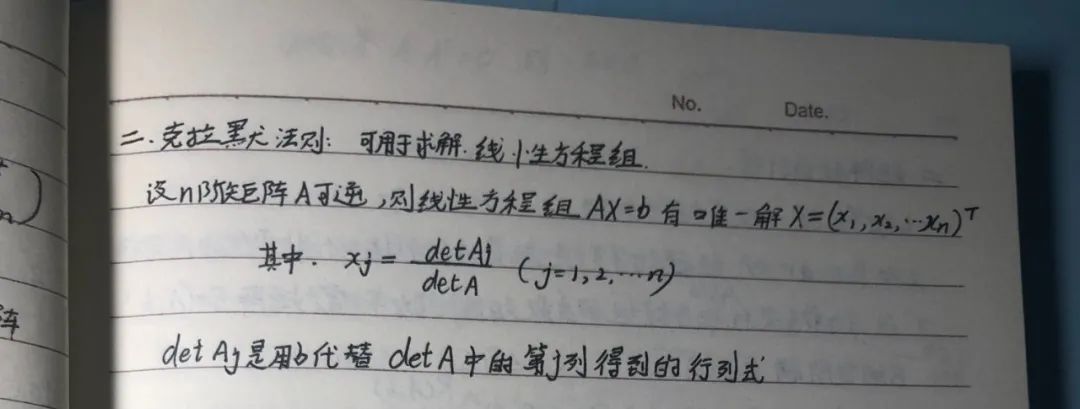 No. Date.
二.克拉默法则: 可用于求解.线性方程组.
设n阶矩阵A可逆,则线性方程组 AX=b 有唯一解 X=(x₁,x₂,…xₙ)ᵀ
其中. xj = detAj / detA (j=1,2,…n)
det Aj是用b代替 detA中的第j列得到的行列式
阵